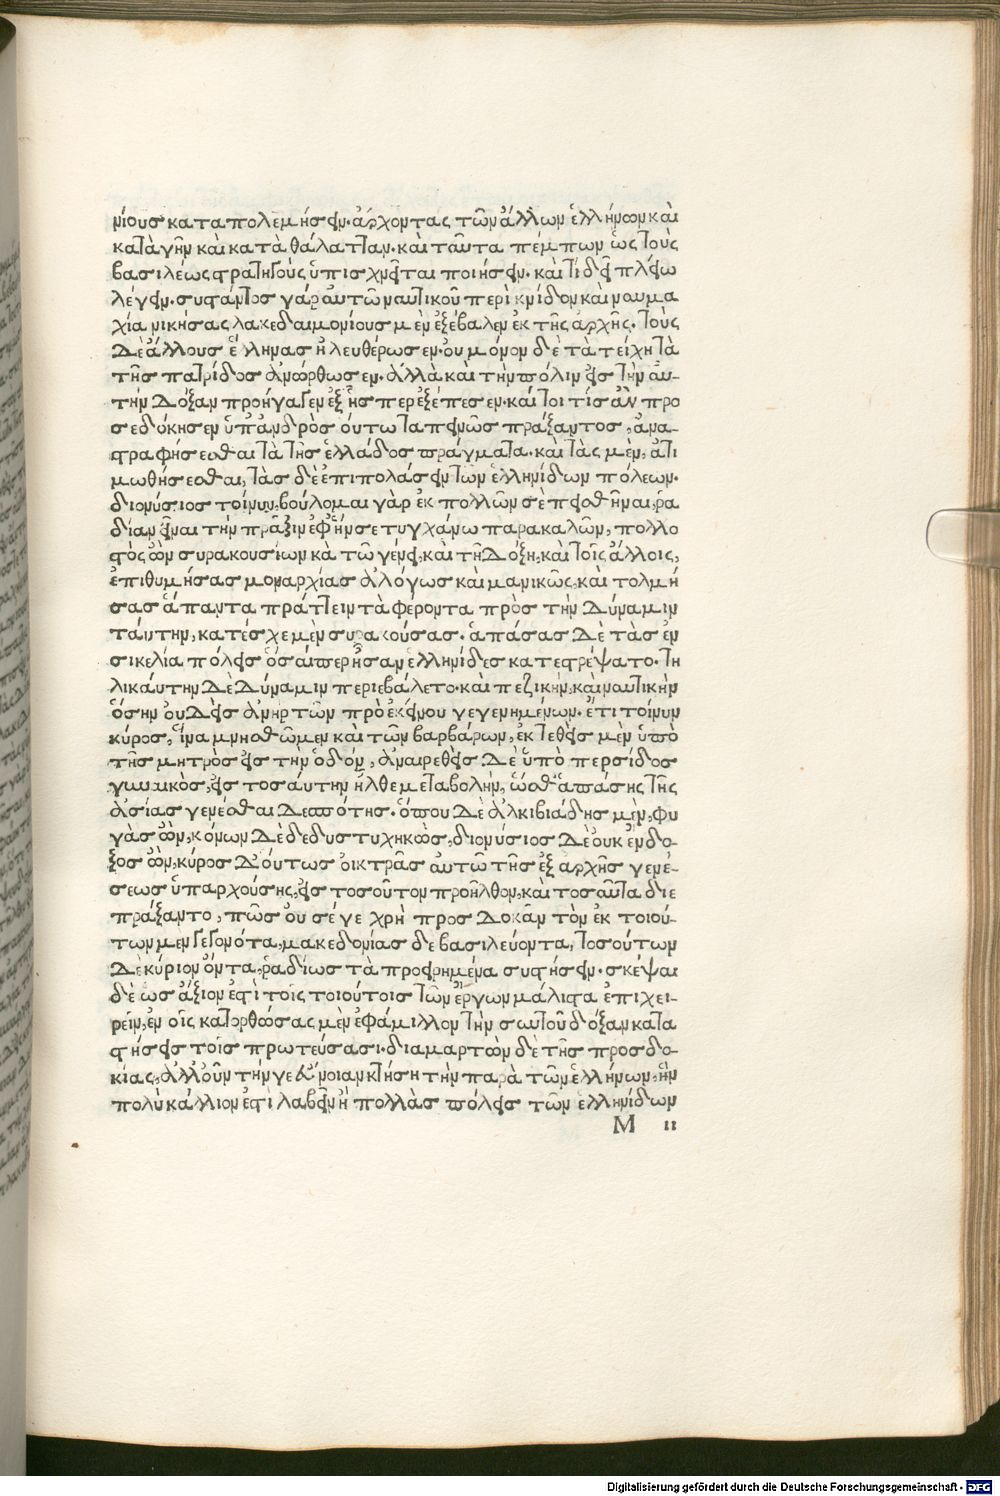 νίους καταπολεμήσειν· ἄρχοντας τῶν ἄλλων ἑλλήνων καὶ
κατὰ γῆν καὶ κατὰ θάλατταν· καὶ ταῦτα πέμπων ὡς τοὺς
βασιλέως στρατηγοὺς ὑπισχνεῖται ποιήσειν· καὶ τί δεῖ πλείω
λέγειν· συστάντος γάρ αὐτῶ ναυτικοῦ περὶ κνίδον καὶ ναυμα
χία νικήσας λακεδαιμονίους μὲν ἐξέβαλεν ἐκ τῆς ἀρχῆς· τοὺς
δὲ ἄλλους ἕλληνας ἠλευθέρωσεν· οὐ μόνον δὲ τὰ τείχη τὰ
τῆς πατρίδος ἀνώρθωσεν· ἀλλὰ καὶ τὴν πόλιν εἰς τὴν αὐ-
τὴν δόξαν προήγαγεν ἐξ ἧσπερ ἐξέπεσεν· καίτοι τίς ἂν προ
σεδόκησεν ὑπ' ἀνδρὸς οὕτω ταπεινῶς πράξαντος, ἀνα-
στραφήσεσθαι τὰ τῆς ἑλλάδος πράγματα· καὶ τὰς μὲν, ἀτι
μωθήσεσθαι, τὰς δὲ ἐπιπολάσειν τῶν ἑλληνίδων πόλεων·
διονύσιος τοίνυν, βούλομαι γὰρ ἐκ πολλῶν σὲ πεισθῆναι, ῥα
δίαν εἶναι τὴν πρᾶξιν ἐφ' ἥν σε τυγχάνω παρακαλῶν, πολλο
στὸς ὢν συρακουσίων κὰ τῶ γένει, καὶ τῆ δόξη, καὶ τοῖς ἄλλοις,
ἐπιθυμήσας μοναρχίας ἀλόγως καὶ μανικῶς, καὶ τολμή
σας ἅπαντα πράττειν τὰ φέροντα πρὸς τὴν δύναμιν
ταύτην, κατέσχε μὲν συρακούσας· ἁπάσας δὲ τὰς ἐν
σικελία πόλεις ὅσαιπερ ἦσαν ἑλληνίδες κατεστρέψατο· τη
λικαύτην δὲ δύναμιν περιεβάλετο· καὶ πεζικὴν, καὶ ναυτικὴν
ὅσην οὐδεὶς ἀνὴρ τῶν πρὸ ἐκείνου γεγενημένων· ἔτι τοίνυν
κύρος, ἵνα μνησθῶμεν καὶ τῶν βαρβάρων, ἐκτεθεὶς μὲν ὑπὸ
τῆς μητρὸς εἰς τὴν ὁδόν, ἀναιρεθεὶς δὲ ὑπὸ περσίδος
γυναικὸς, εἰς τοσαύτην ἦλθε μεταβολὴν, ὥσθ' ἁπάσης τῆς
ἀσίας γενέσθαι δεσπότης· ὅπου δὲ ἀλκιβιάδης μὲν, φυ
γὰς ὢν, κόνων δὲ δεδυστυχηκὼς, διονύσιος δὲ οὐκ ἔνδο-
ξος ὢν, κύρος δ' οὕτως οἰκτρᾶς αὐτῶ τῆς ἐξ ἀρχῆς γενέ-
σεως ὑπαρχούσης, εἰς τοσοῦτον προῆλθον, καὶ τοσαῦτα διε
πράξαντο, πῶς οὐ σέ γε χρὴ προσδοκᾶν τὸν ἐκ τοιού-
των μὲν γεγονότα, μακεδονίας δὲ βασιλεύοντα, τοσούτων
δὲ κύριον ὄντα, ῥαδίως τὰ προειρημένα συστήσειν· σκέψαι
δὲ ὡς ἄξιον ἐστὶ τοῖς τοιούτοις τῶν ἔργων μάλιστα ἐπιχει-
ρεῖν, ἐν οἷς κατορθώσας μὲν ἐφάμιλλον τὴν σαυτοῦ δόξαν κατα
στήσεις τοῖς πρωτεύσασι· διαμαρτὼν δὲ τῆς προσδο-
κίας, ἀλλ' οὖν τήν γε εὔνοιαν κτήση τὴν παρὰ τῶν ἑλλήνων, ἣν
πολὺ κάλλιον ἐστὶ λαβεῖν ἢ πολλὰς πόλεις τῶν ἑλληνίδων
M ii
Digitalisierung gefördert durch die Deutsche Forschungsgemeinschaft - DFG